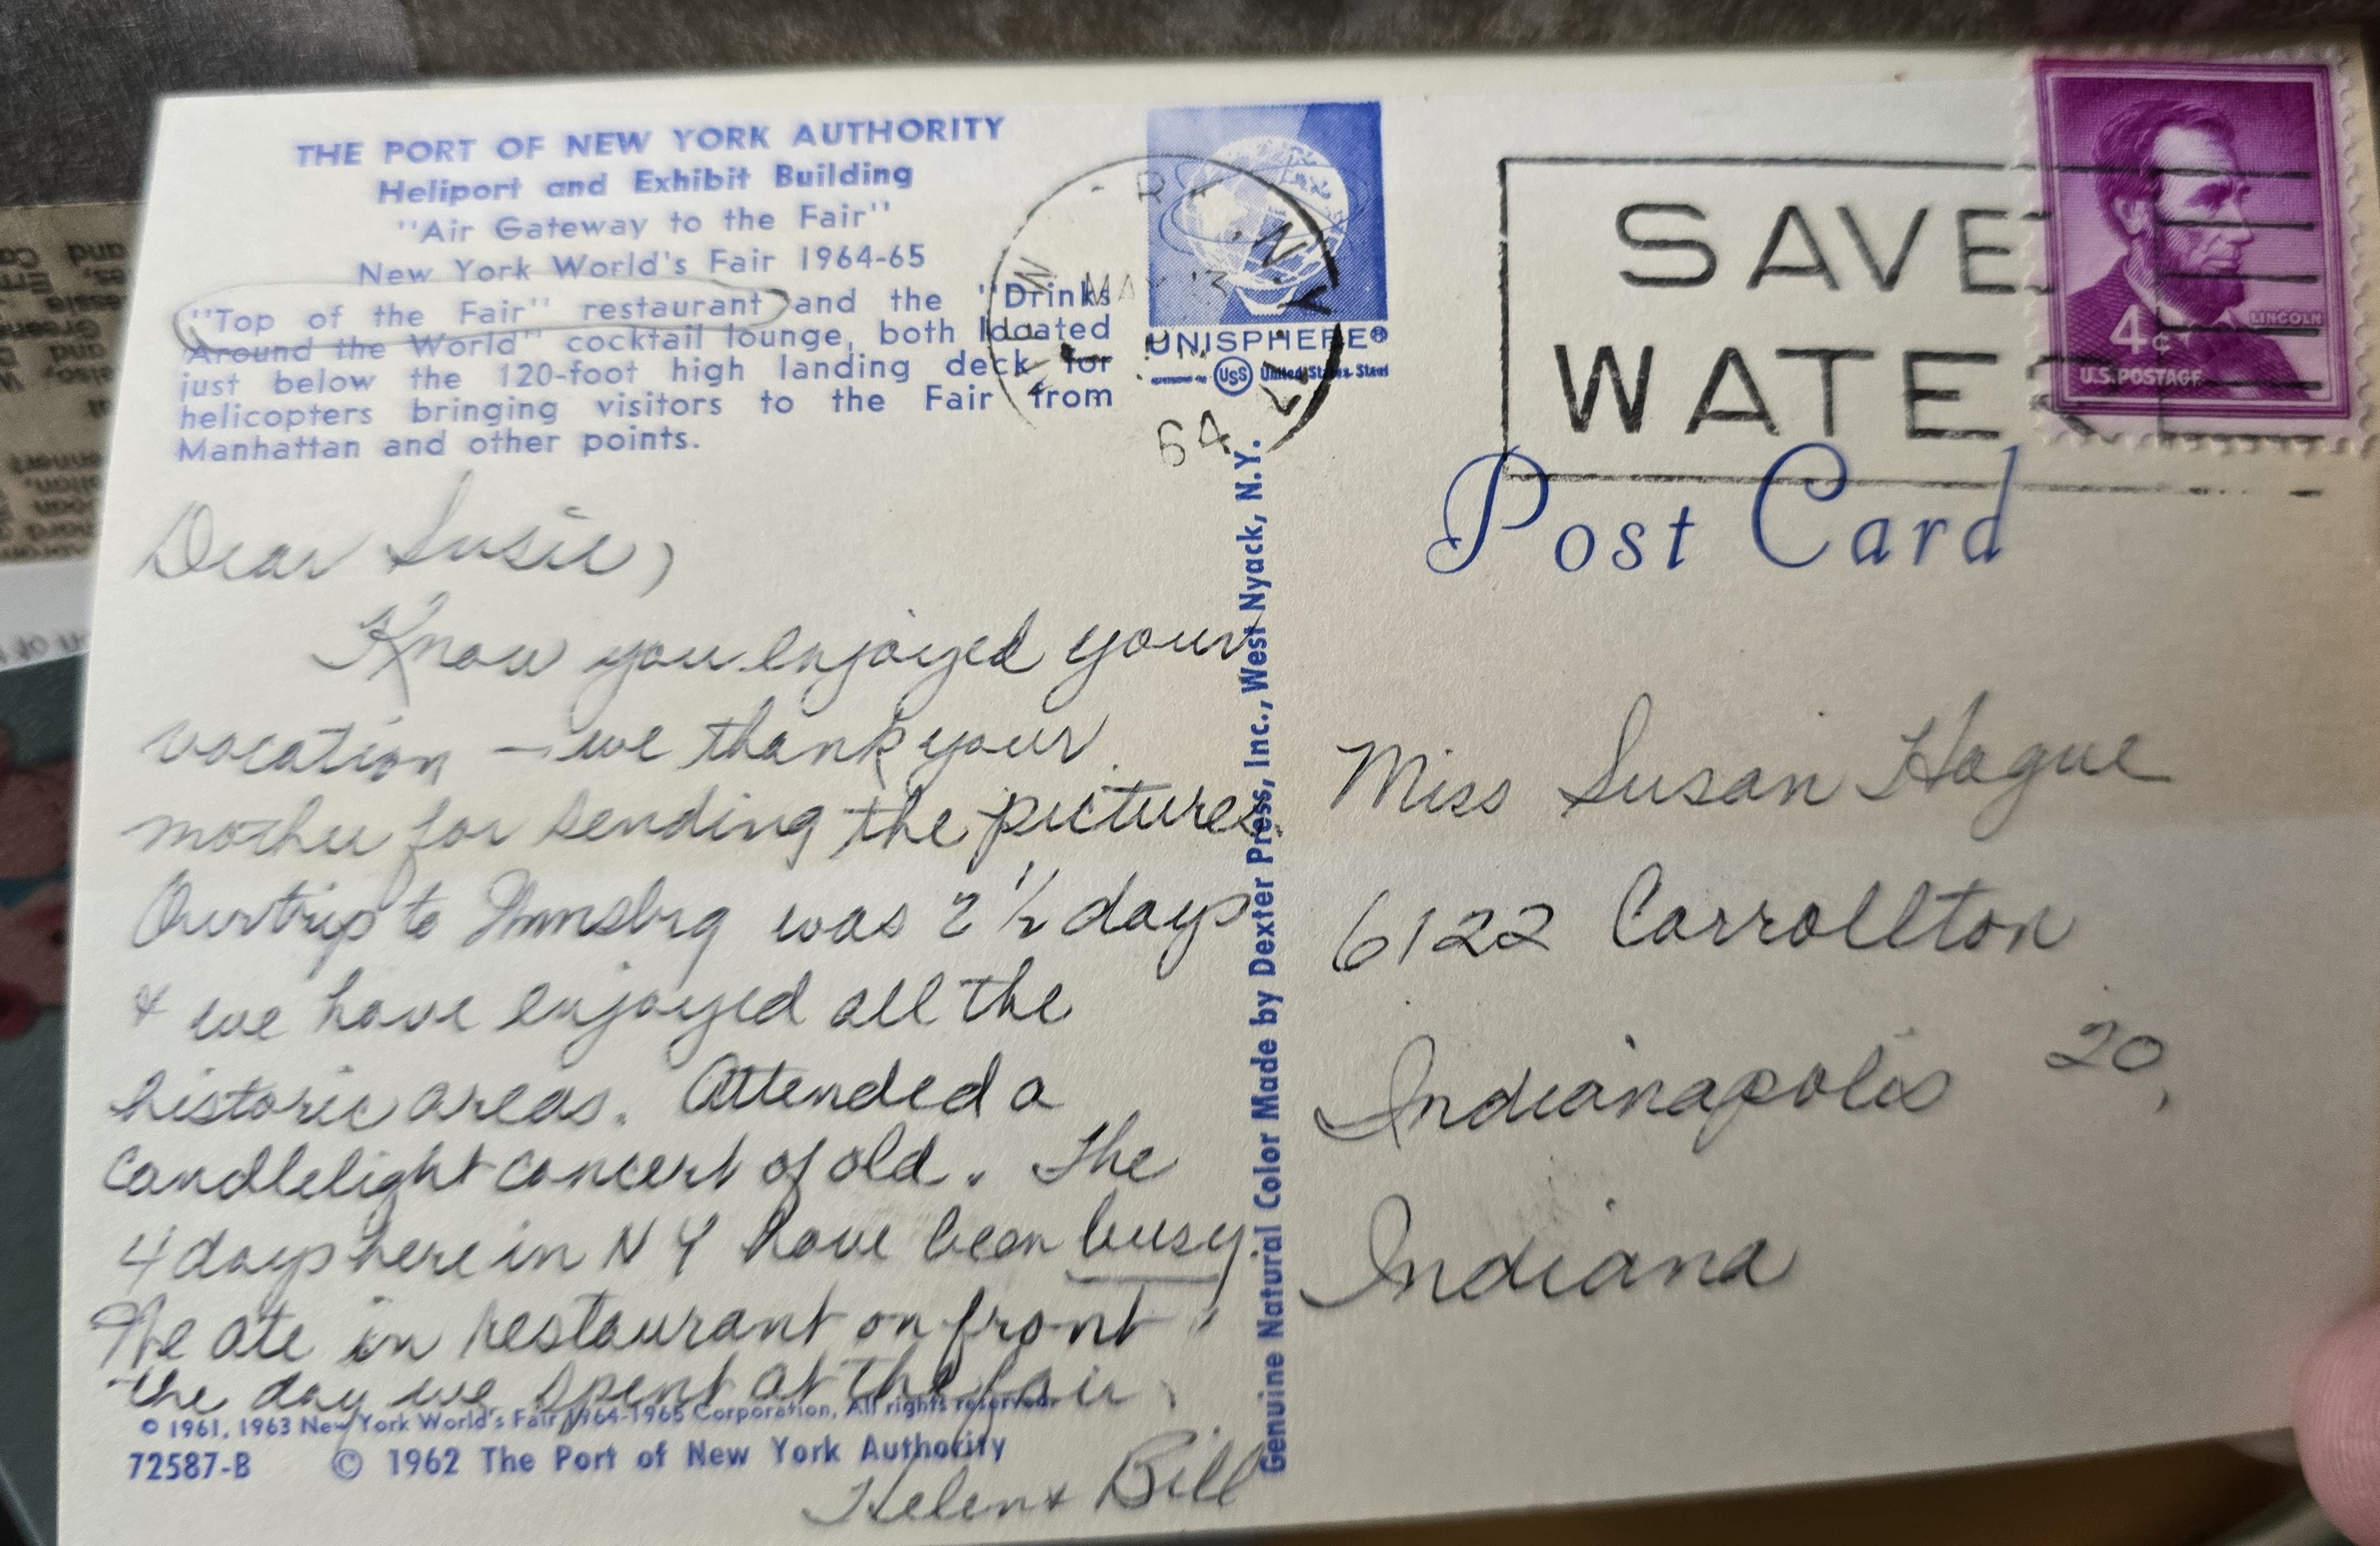 THE PORT OF NEW YORK AUTHORITY
Heliport and Exhibit Building
"Air Gateway to the Fair"
New York World's Fair 1964-65
"Top of the Fair" restaurant and the "Drinks
Around the World" cocktail lounge, both located
just below the 120-foot high landing deck for
helicopters bringing visitors to the Fair from
Manhattan and other points.
Dear Susie,
Know you enjoyed your
vacation — we thank your
mother for sending the pictures.
Our trip to was 2 1/2 days
& we have enjoyed all the
historic areas. Attended a
Candlelight concert of old. The
4 days here in N Y have been busy.
We ate in restaurant on front
the day we spent at the fair.
Helen & Bill
© 1961, 1963 New York World's Fair 1964-1965 Corporation, All rights reserved.
72587-B © 1962 The Port of New York Authority
Genuine Natural Color Made by Dexter Press, Inc., West Nyack, N.Y.
UNISPHERE®
USS United States Steel
N.Y.
MAY 13
64
SAVE
WATER
LINCOLN
4¢
U.S. POSTAGE
Post Card
Miss Susan Hague
6122 Carrollton
Indianapolis 20,
Indiana